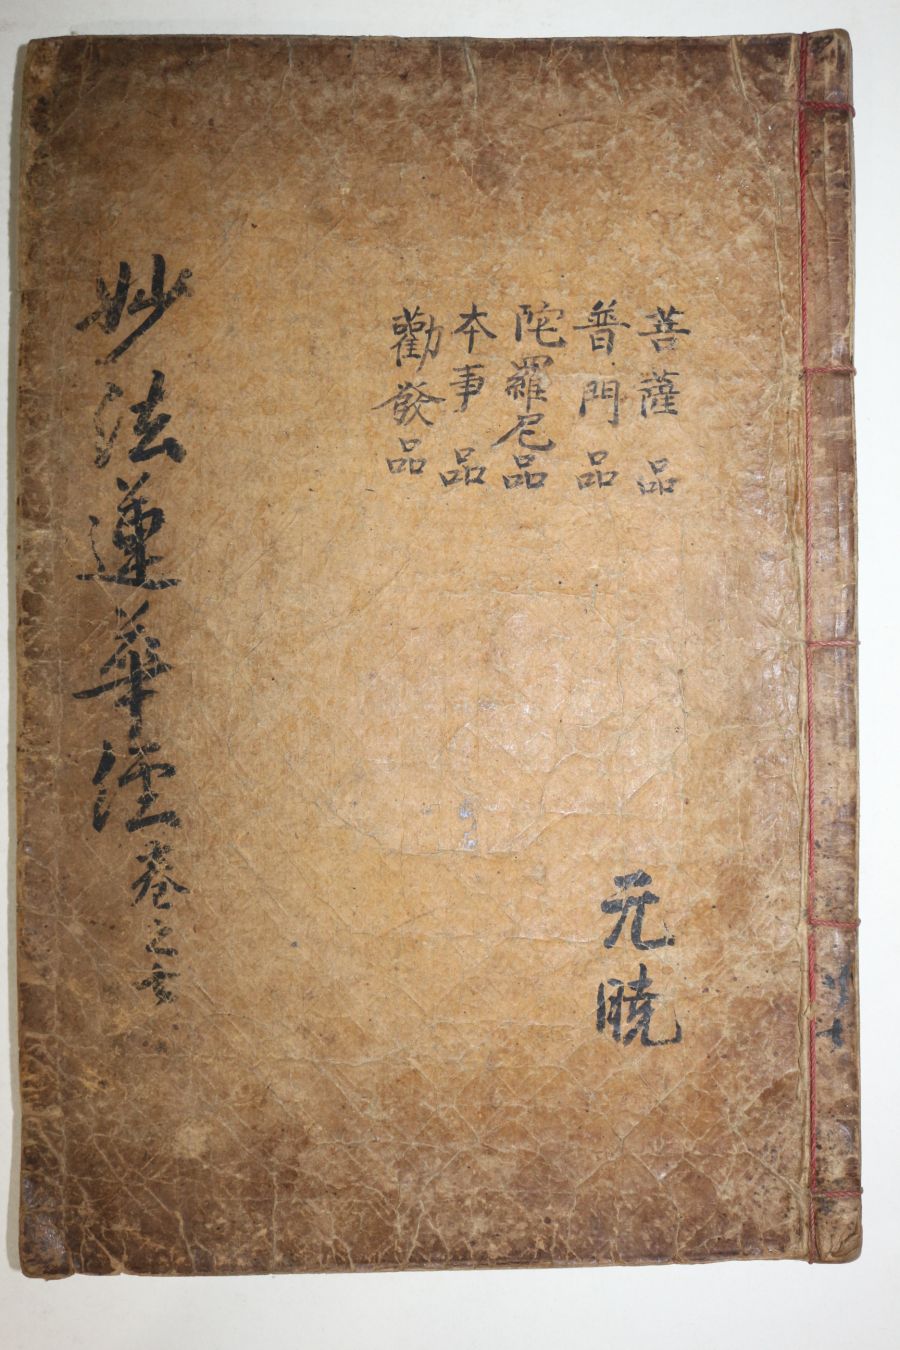 菩薩品
普門品
陀羅尼品
本事品
勸發品
元曉
妙法蓮華経卷之七